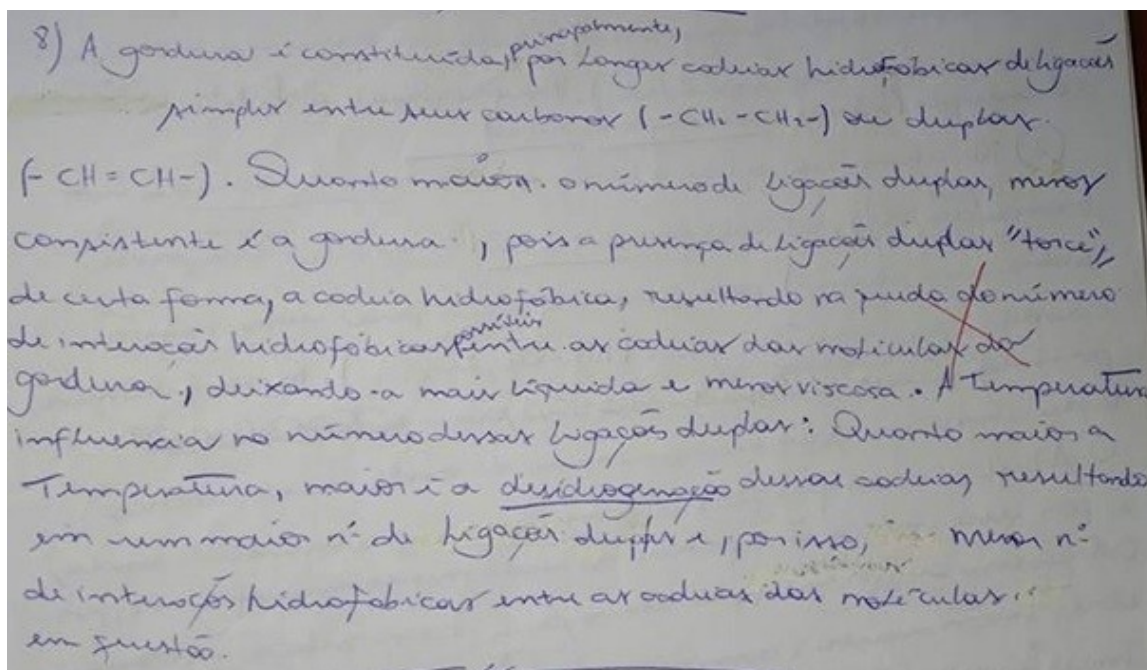 8) A gordura é constituída, principalmente, por longas cadeias hidrofóbicas de ligações
simples entre seus carbonos (-CH2-CH2-) ou duplas.
(-CH=CH-). Quanto maior o número de ligações duplas, menos
consistente é a gordura, pois a presença de ligações duplas "torce",
de certa forma, a cadeia hidrofóbica, resultando na perda do número
de interações hidrofóbicas possíveis entre as cadeias das moléculas da
gordura, deixando-a mais líquida e menos viscosa. A Temperatura
influencia no número dessas ligações duplas: Quanto maior a
Temperatura, maior é a desidrogenação dessas cadeias, resultando
em um maior nº de ligações duplas e, por isso, menor nº
de interações hidrofóbicas entre as cadeias das moléculas
em questão.